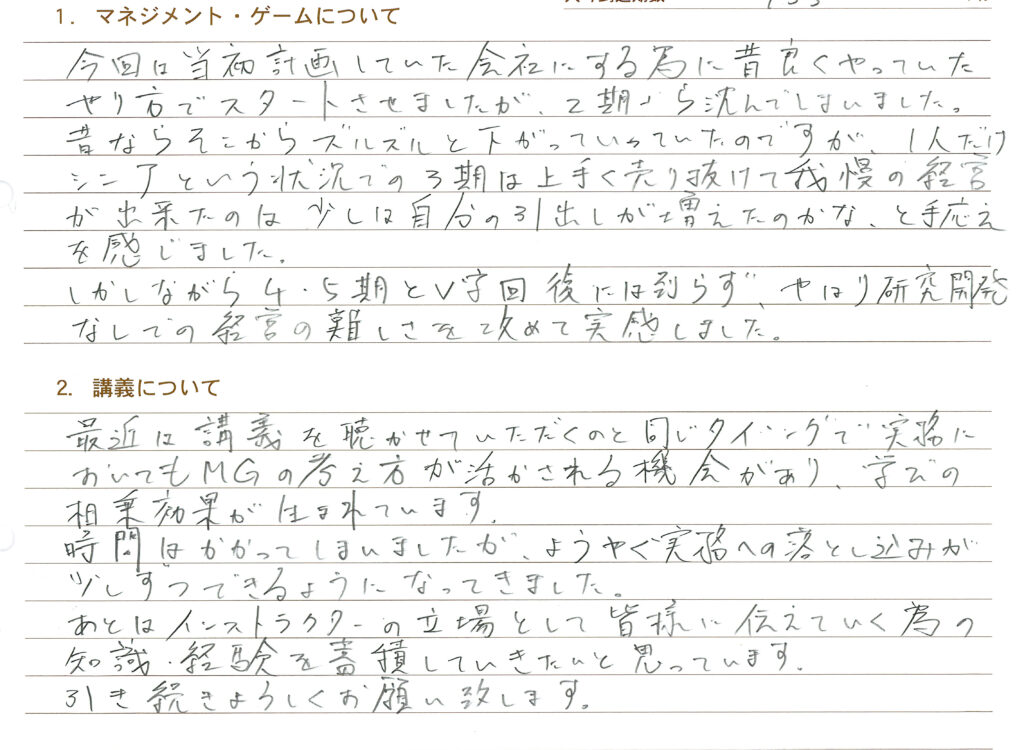 1. マネジメント・ゲームについて
今回は当初計画していた会社にする為に昔良くやっていた
やり方でスタートさせましたが、2期から沈んでしまいました。
昔ならそこからズルズルと下がっていっていたのですが、1人だけ
シニアという状況での3期は上手く売り抜けて我慢の経営
が出来たのは少しは自分の引出しが増えたのかな、と手応え
を感じました。
しかしながら4・5期とV字回復には到らず、やはり研究開発
なしでの経営の難しさを改めて実感しました。
2. 講義について
最近は講義を聴かせていただくのと同じタイミングで実務に
おいてもMGの考え方が活かされる機会があり、学びの
相乗効果が生まれています。
時間はかかってしまいましたが、ようやく実務への落とし込みが
少しずつできるようになってきました。
あとはインストラクターの立場として皆様に伝えていく為の
知識・経験を蓄積していきたいと思っています。
引き続きよろしくお願い致します。